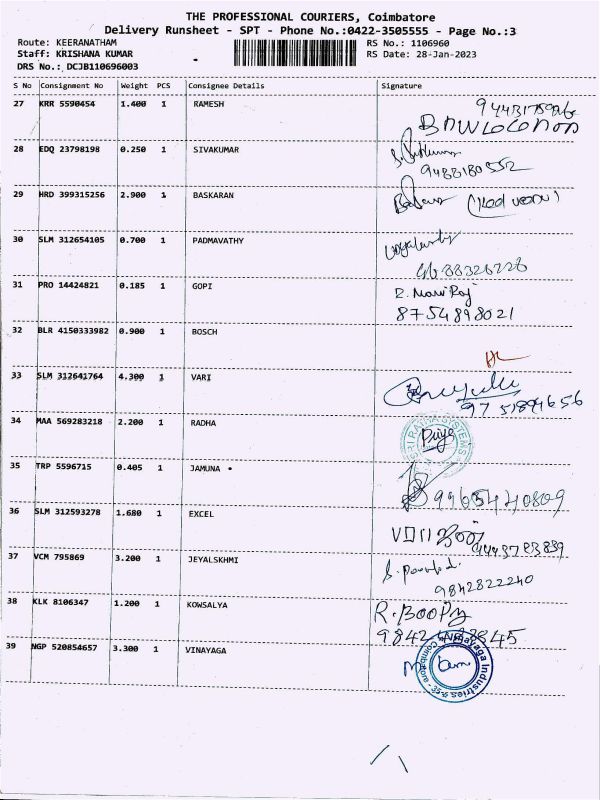 THE PROFESSIONAL COURIERS, Coimbatore
Delivery Runsheet - SPT - Phone No.:0422-3505555 - Page No.:3
Route: KEERANATHAM
RS No.: 1106960
Staff: KRISHANA KUMAR
RS Date: 28-Jan-2023
DRS No.: DCJB110696003
S No Consignment No Weight PCS Consignee Details Signature
27 KRR 5590454 1.400 1 RAMESH
28 EDQ 23798198 0.250 1 SIVAKUMAR
9488180552
29 HRD 399315256 2.900 1 BASKARAN
30 SLM 312654105 0.700 1 PADMAVATHY
31 PRO 14424821 0.185 1 GOPI
R. Mani Raj
8754898021
32 BLR 4150333982 0.900 1 BOSCH
33 SLM 312641764 4.300 1 VARI
34 MAA 569283218 2.200 1 RADHA
Priya
35 TRP 5596715 0.405 1 JAMUNA
9965440809
36 SLM 312593278 1.680 1 EXCEL
37 VCM 795869 3.200 1 JEYALSKHMI
9842822240
38 KLK 8106347 1.200 1 KOWSALYA
R. Boopy
39 NGP 520854657 3.300 1 VINAYAGA
Vinayaga Industries